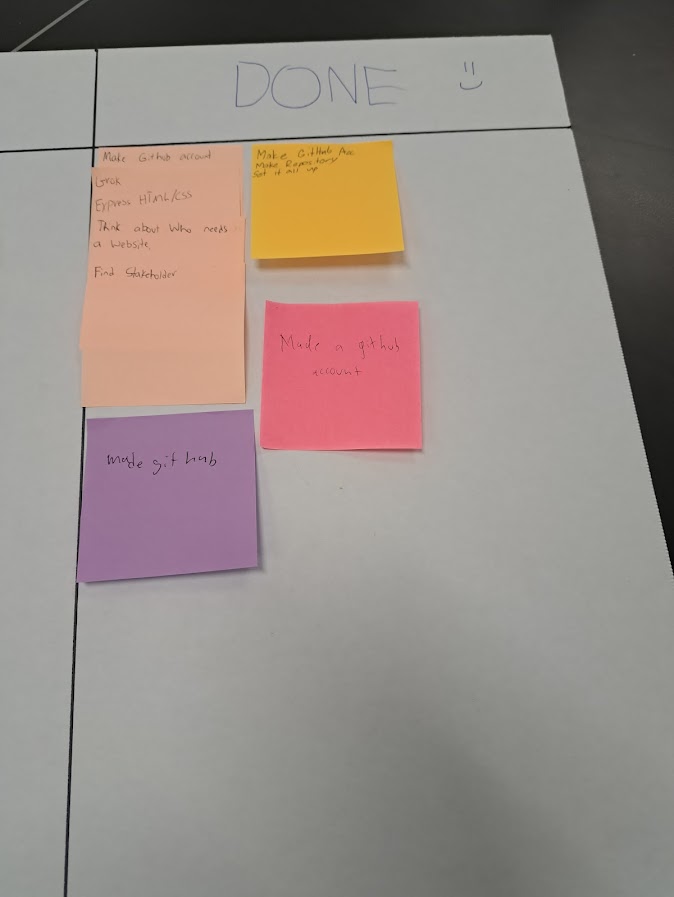 DONE
Make Github account
Grok
Express HTML/CSS
Think about Who needs
a Website.
Find Stakeholder
Make GitHub Acc
Make Repository
Set it all up
Made a github
account
made git hub